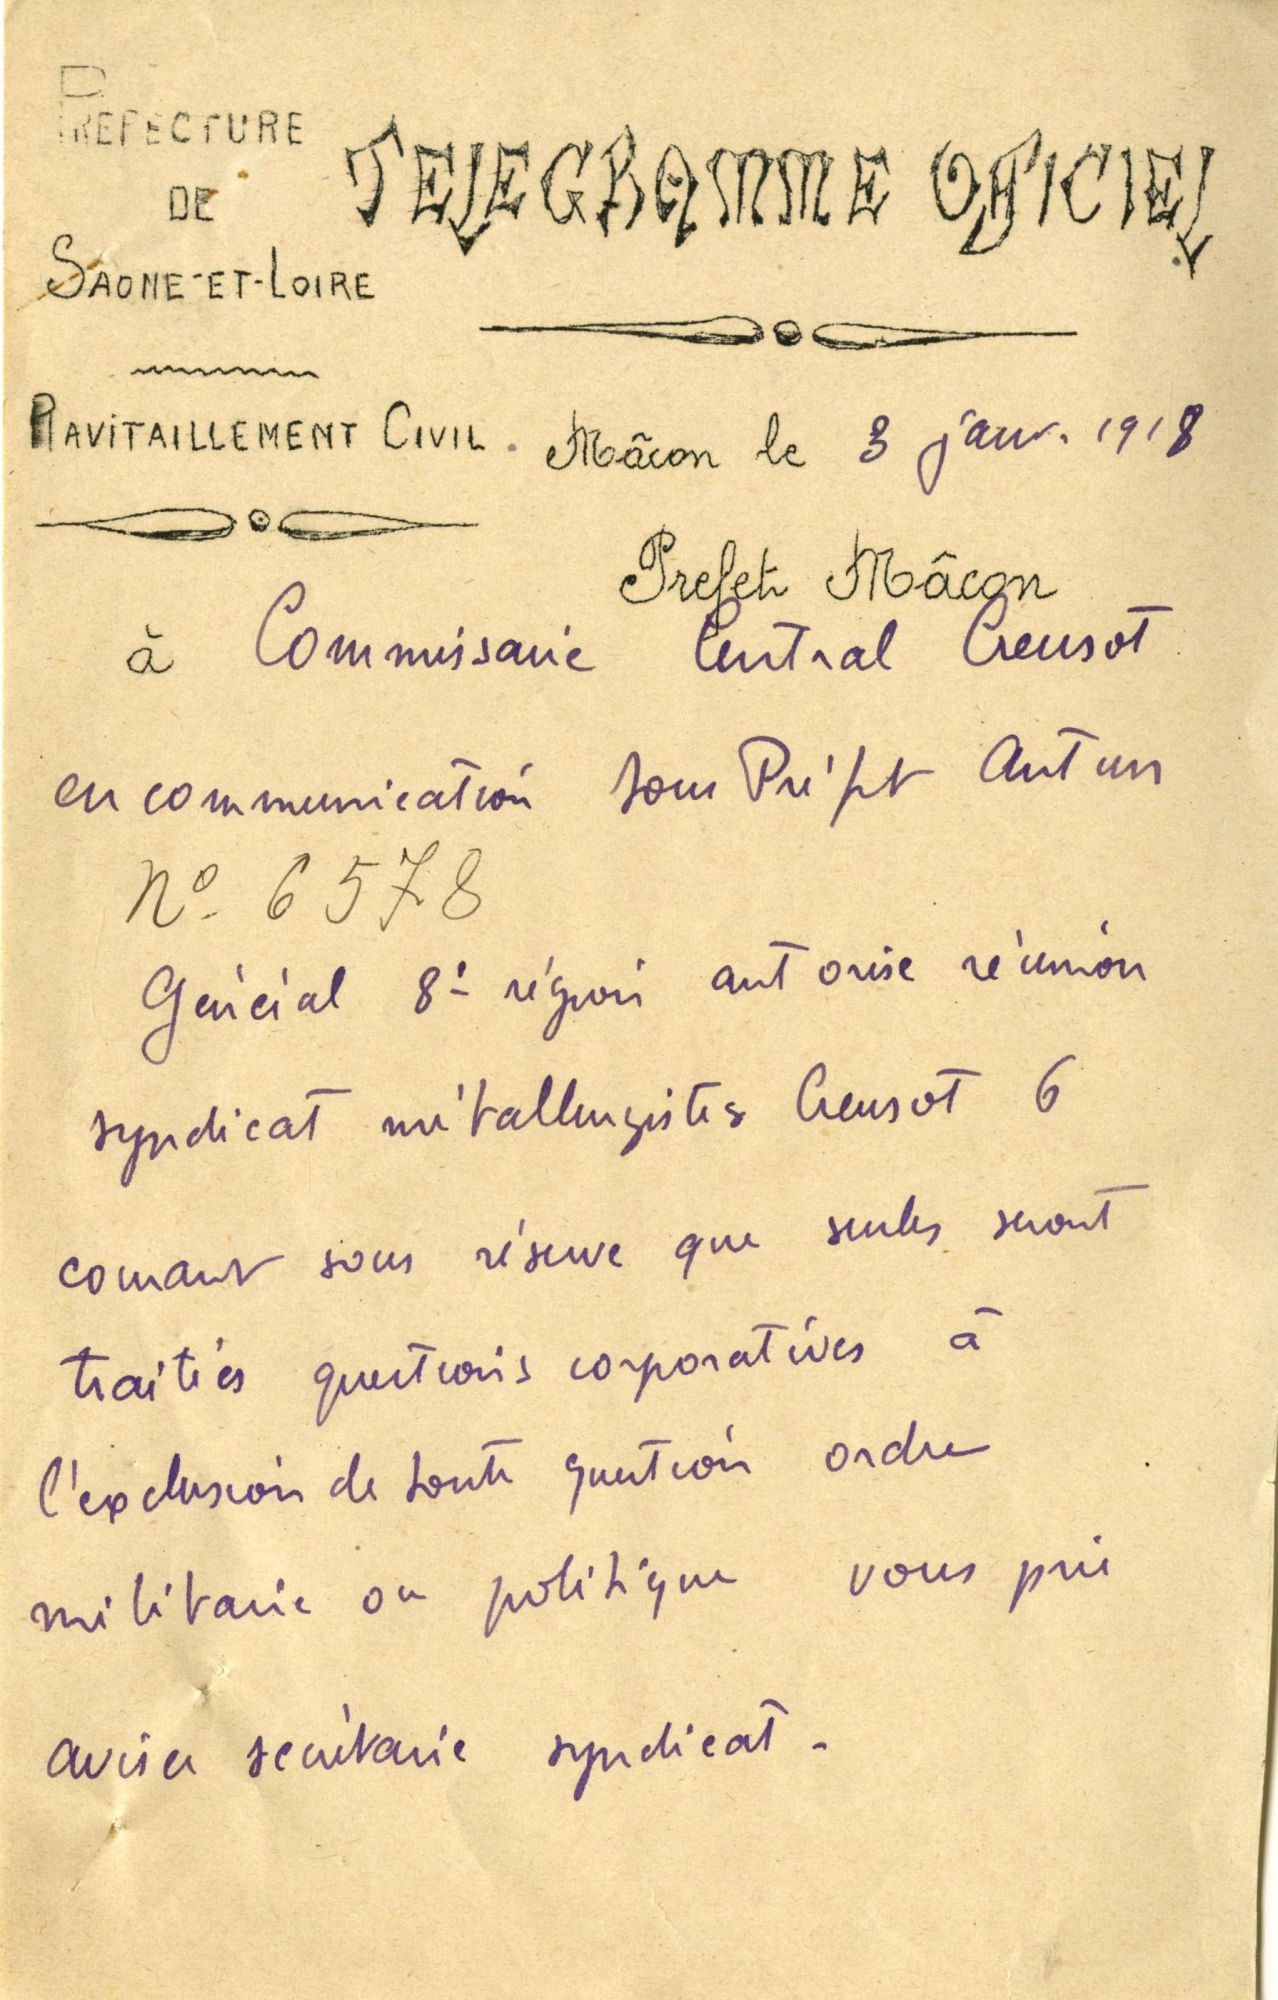 PREFECTURE
DE
SAONE-ET-LOIRE
RAVITAILLEMENT CIVIL.
TELEGRAMME OFFICIEL
Mâcon le 3 janv. 1918
Prefet Mâcon
à Commissaire Central Creusot
en communication Sous Préft Autun
No. 6578
Général 8e région autorise réunion
syndicat métallurgistes Creusot 6
courant sous réserve que seules seront
traitées questions corporatives à
l'exclusion de toute question ordre
militaire ou politique vous prie
aviser secrétaire syndicat.